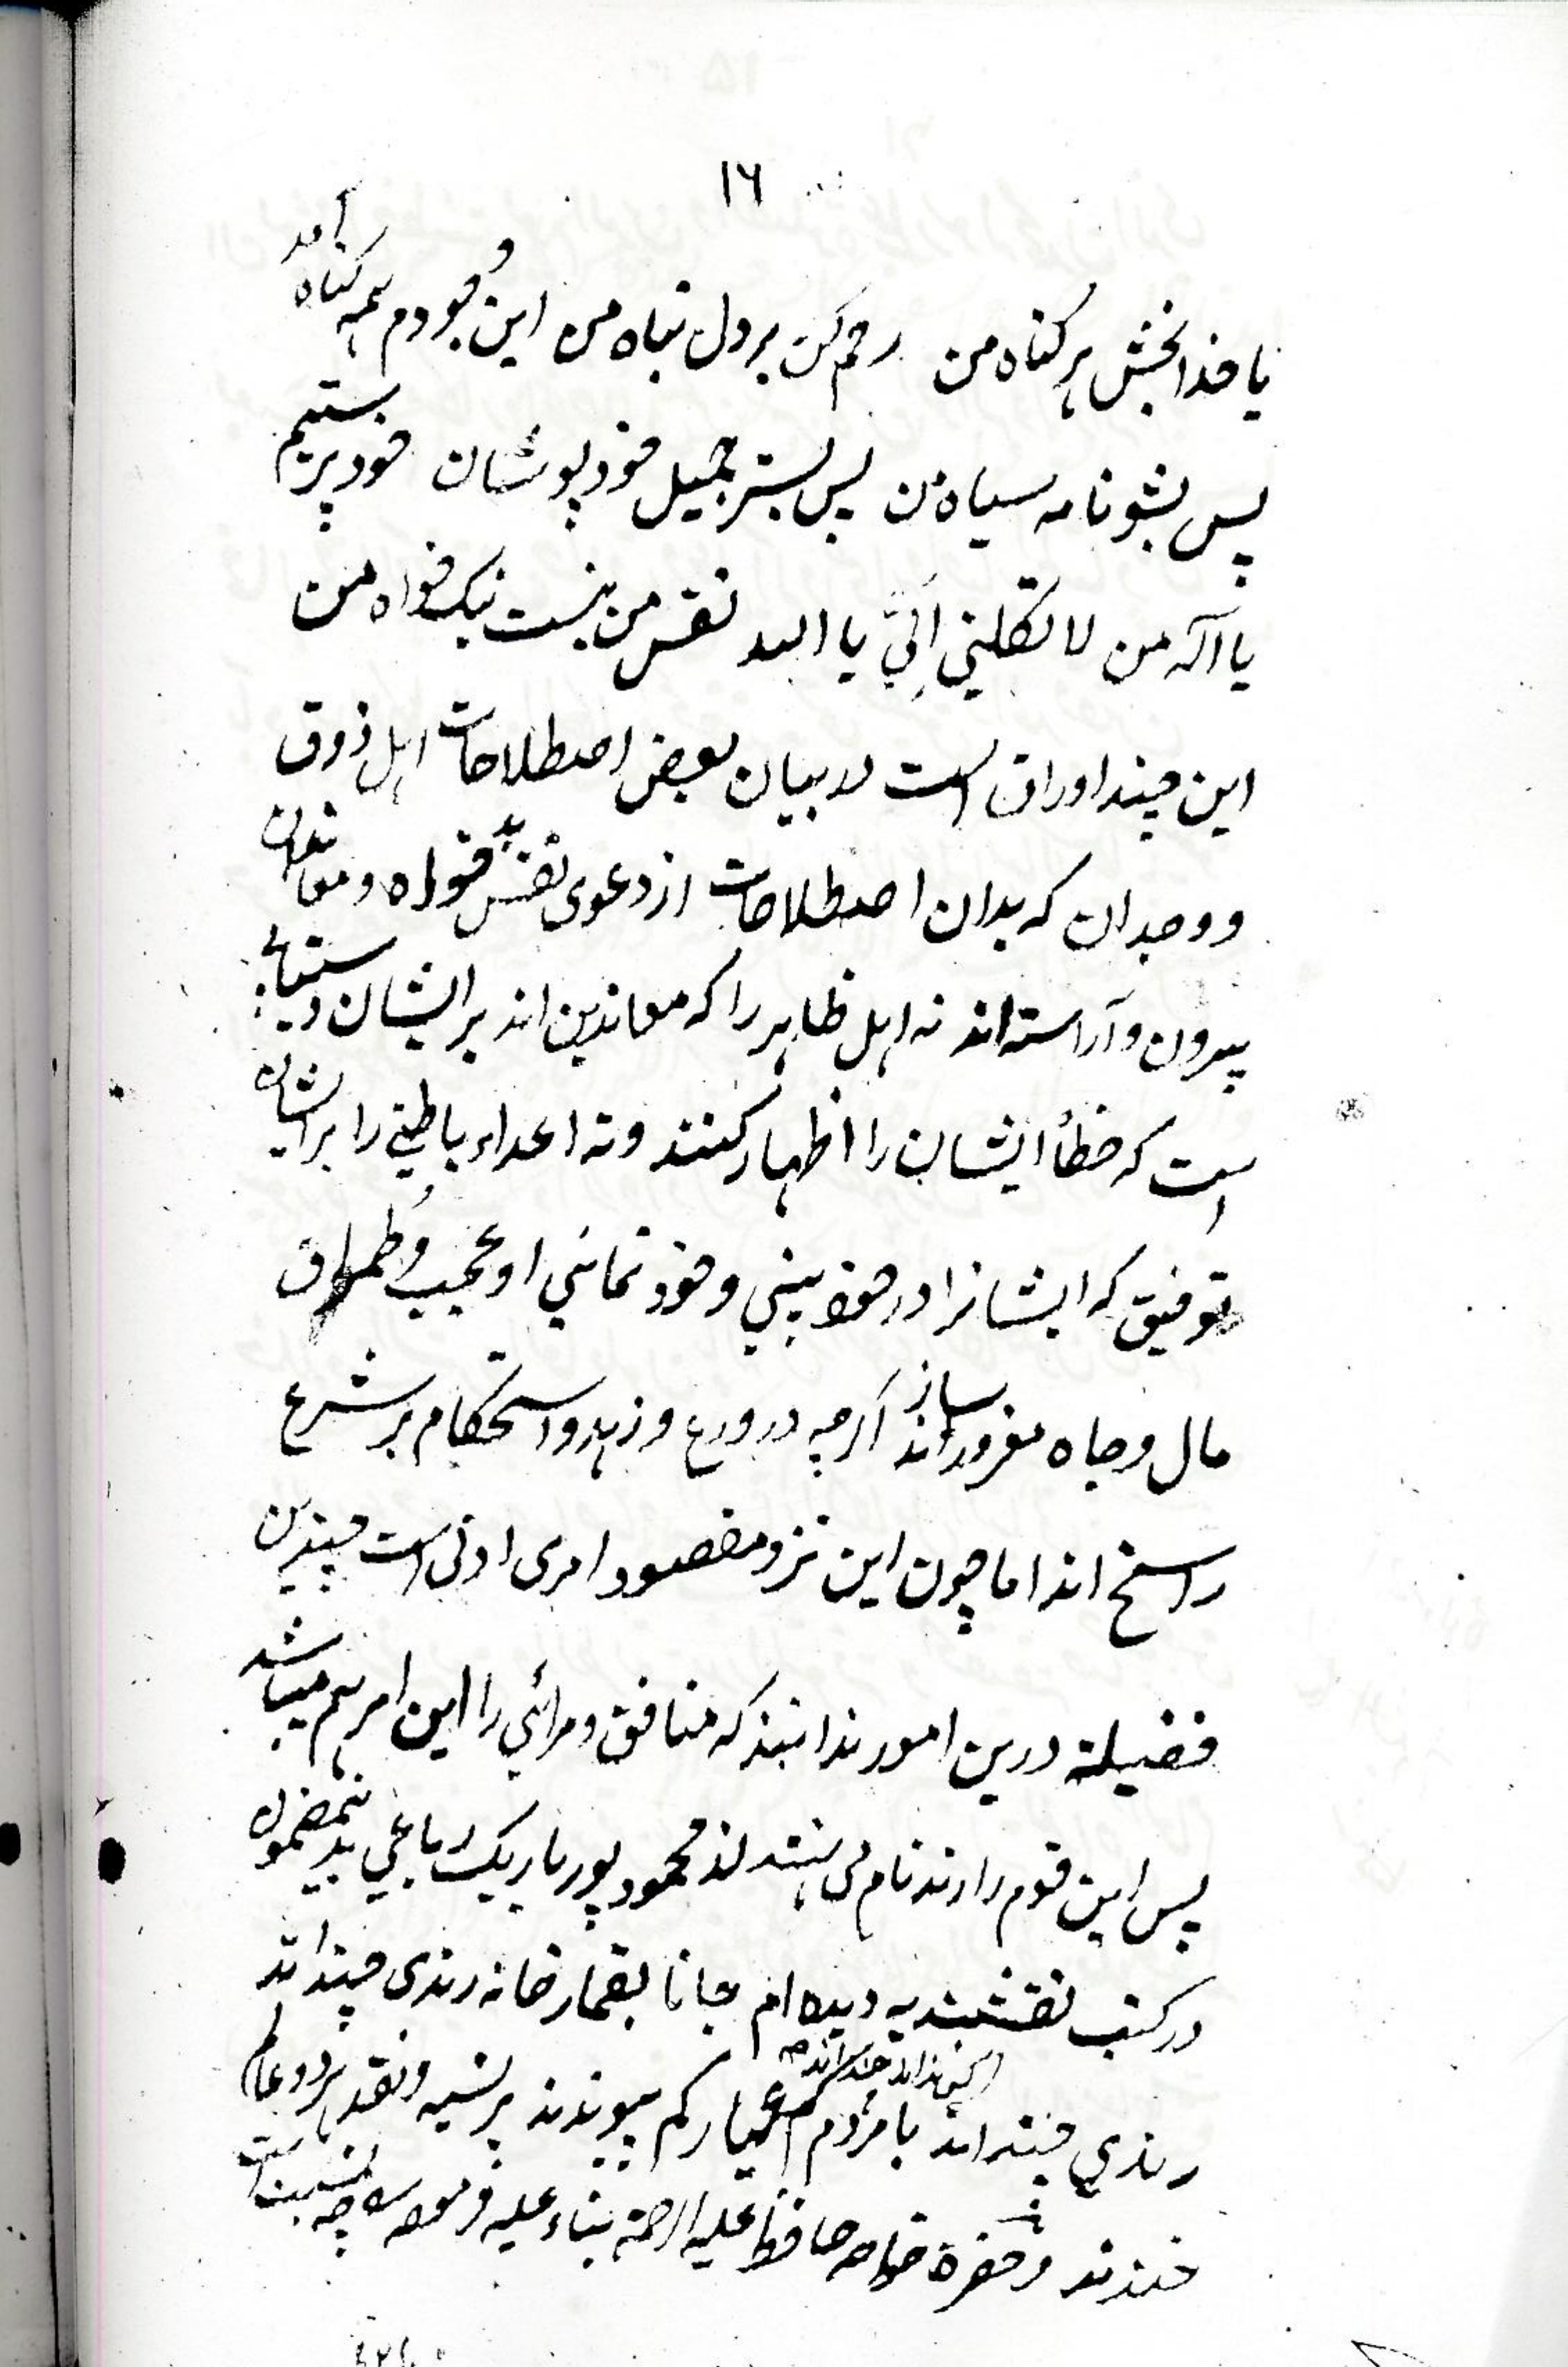 ۱۶
یا خدا بخش هر گناه من رحم کن بر دل تباه من این وجودم همه گناه آمد
پس بشو نامه سیاه من پس بستر جمیل خود پوشان خود پرستیم
یا آله من لا تکلنی اِلَیَّ یا الله نفس من نیست نیک خواه من
این چند اوراق است در بیان بعض اصطلاحات اهل ذوق
و وجدان که بدان اصطلاحات از دعوی نفس بد خواه و معاندان
بیرون و آراسته اند نه اهل ظاهر را که معاندین اند بر ایشان دستیابی
است که خطأ ایشان را اظهار کنند و نه اعداء باطنی را بر ایشان
توفیق که ایشانرا در خود بینی و خود نمائی او عجب و طمطراق
مال و جاه مغرور سازند اگرچه در ورع و زهد و استحکام بر شرع
راسخ اند اما چون این نزد مقصود امری ادنی است چندین
فضیلة درین امور ندانند که منافق و مرائی را این امر هم میباشد
پس این قوم را رند نام می نهند از محمود پور یار یک رباعی بدینمضمون
در کتب نقشبندیه دیده ام جانا بقمار خانه رندی چند اند
رندی چند اند با مردم کم عیار کم پیوندند بر نسیه و نقد هر دو عالم
خندند و حضرة خواجه حافظ علیه الرحمة بناء علیه فرموده چه نسبت است